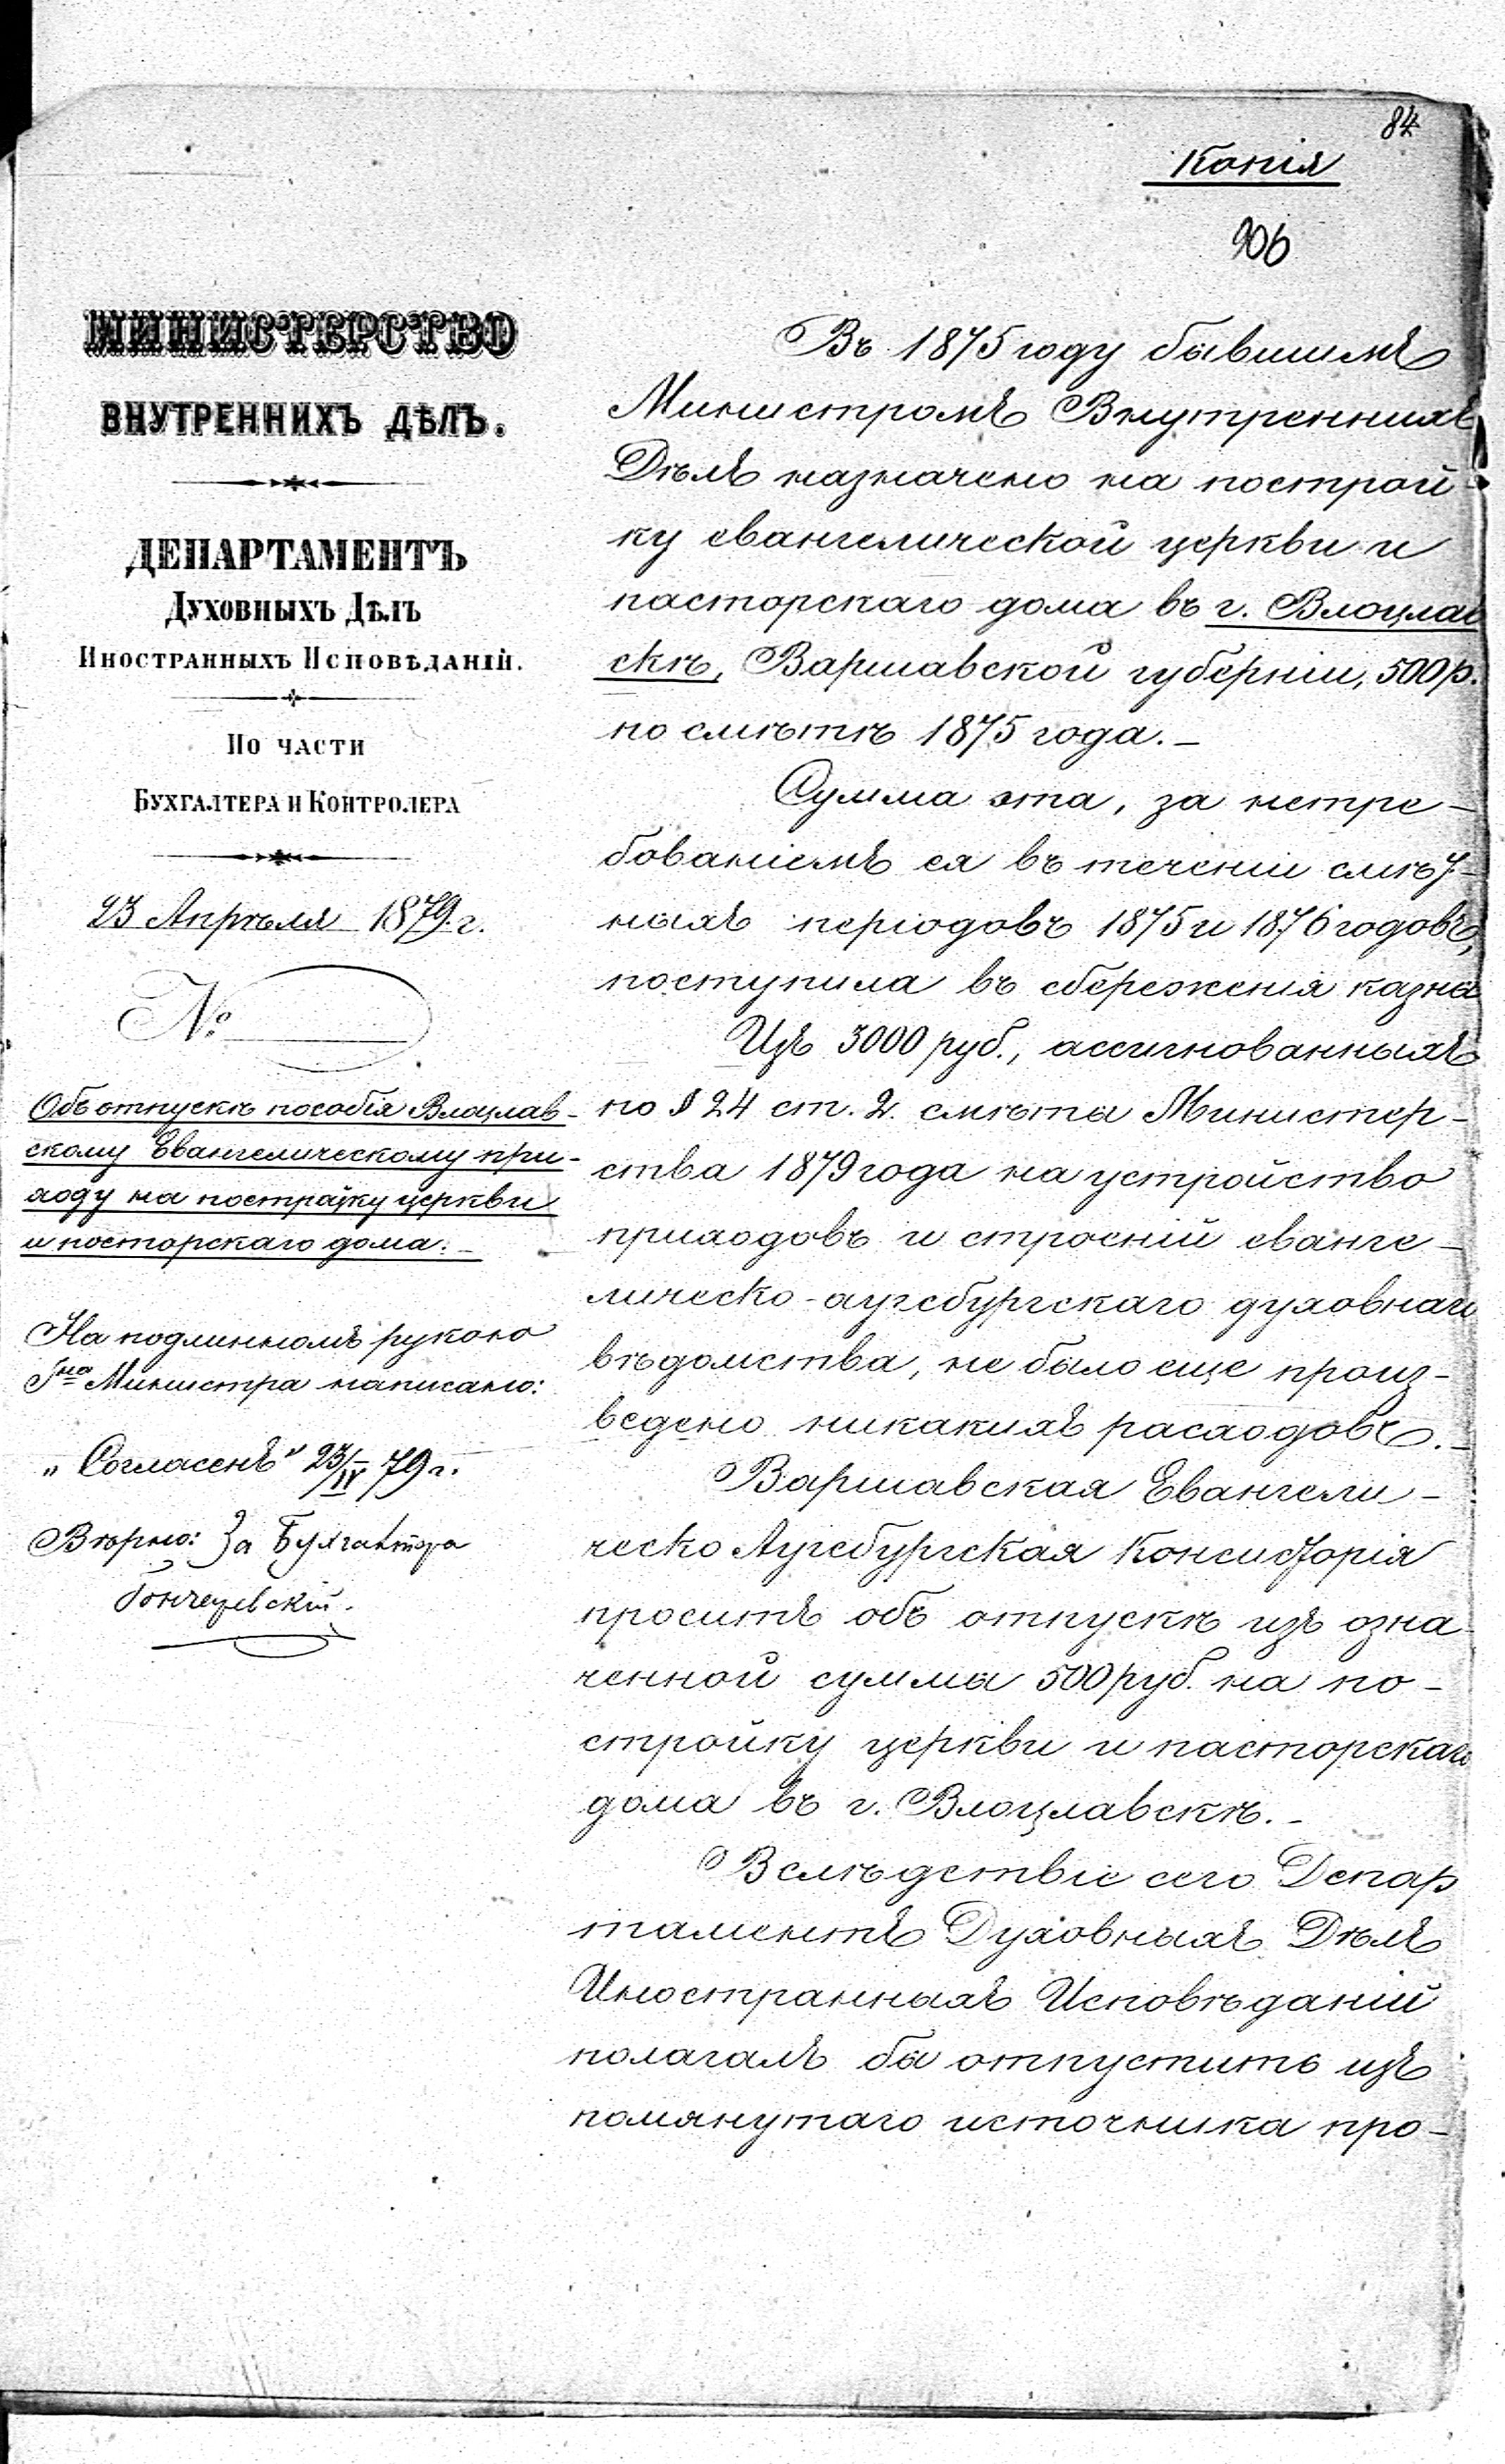 84
Копія
906
МИНИСТЕРСТВО
ВНУТРЕННИХЪ ДѢЛЪ.
ДЕПАРТАМЕНТЪ
Духовныхъ Дѣлъ
Иностранныхъ Исповѣданій.
По части
Бухгалтера и Контролера
23 Апрѣля 1879 г.
№
Объ отпускѣ пособія Влоцлав-
скому Евангелическому при-
ходу на постройку церкви
и пасторскаго дома.
На подлинномъ рукою
Гна Министра написано:
„Согласенъ" 23/IV 79 г.
Вѣрно: За Бухгалтера
Въ 1875 году бывшимъ
Министромъ Внутреннихъ
Дѣлъ назначено на построй-
ку евангелической церкви и
пасторскаго дома въ г. Влоцлав
скѣ, Варшавской губерніи, 500 р.
по смѣтѣ 1875 года.
Сумма эта, за нетре-
бованіемъ ея въ теченіи смѣт-
ныхъ періодовъ 1875 и 1876 годовъ,
поступила въ сбереженія казны
Изъ 3000 руб., ассигнованныхъ
по § 24 ст. 2. смѣты Министер-
ства 1879 года на устройство
приходовъ и строеній еванге-
лическо-аугсбургскаго духовнаго
вѣдомства, не было еще произ-
ведено никакихъ расходовъ.
Варшавская Евангели-
ческо Аугсбургская Консисторія
проситъ объ отпускѣ изъ озна
ченной суммы 500 руб. на по-
стройку церкви и пасторскаго
дома въ г. Влоцлавскѣ.
Вслѣдствіе сего Депар
таментъ Духовныхъ Дѣлъ
Иностранныхъ Исповѣданій
полагалъ бы отпустить изъ
помянутаго источника про-